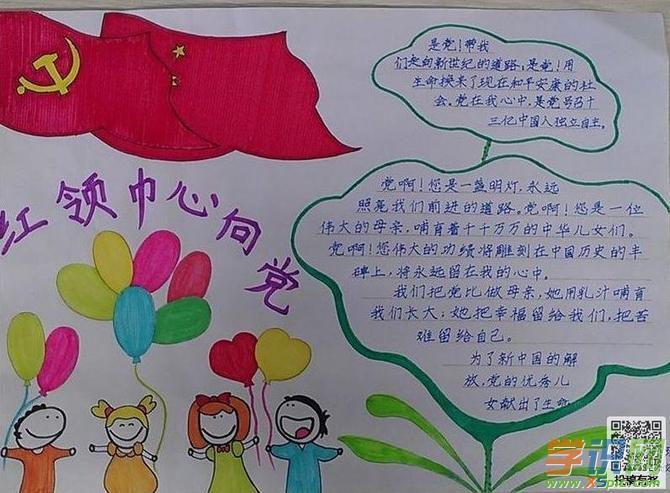 是党!帮我
们走向新世纪的道路,是党!用
生命换来了现在和平安康的社
会。党在我心中,是党号召十
三亿中国人独立自主。
红领巾心向党
党啊!您是一盏明灯,永远
照亮我们前进的道路。党啊!您是一位
伟大的母亲,哺育着千千万万的中华儿女们。
党啊!您伟大的功绩将雕刻在中国历史的丰
碑上,将永远留在我的心中。
我们把党比做母亲,她用乳汁哺育
我们长大;她把幸福留给我们,把苦
难留给自己。
为了新中国的解
放,党的优秀儿
女献出了生命
学识网
投稿有奖